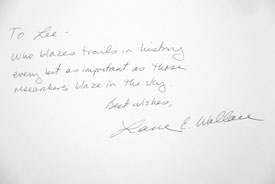 To Lee -
Who blazes trails in history
every bit as important as those
researchers blaze in the sky.
Best wishes,
Lane E. Wallace